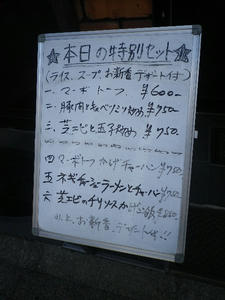 ★本日の特別セット★
(ライス、スープ、お新香、デザート付)
一、マーボードーフ ¥600-
二、豚肉とキャベツミソ炒め ¥750-
三、芝エビと玉子炒め ¥750.
四 マーボドーフかけチャーハン ¥750.
五 ネギチャーシューラーメンとチャーハン
六 芝エビのチリソースかけご飯
以上、お新香、デザート付!!